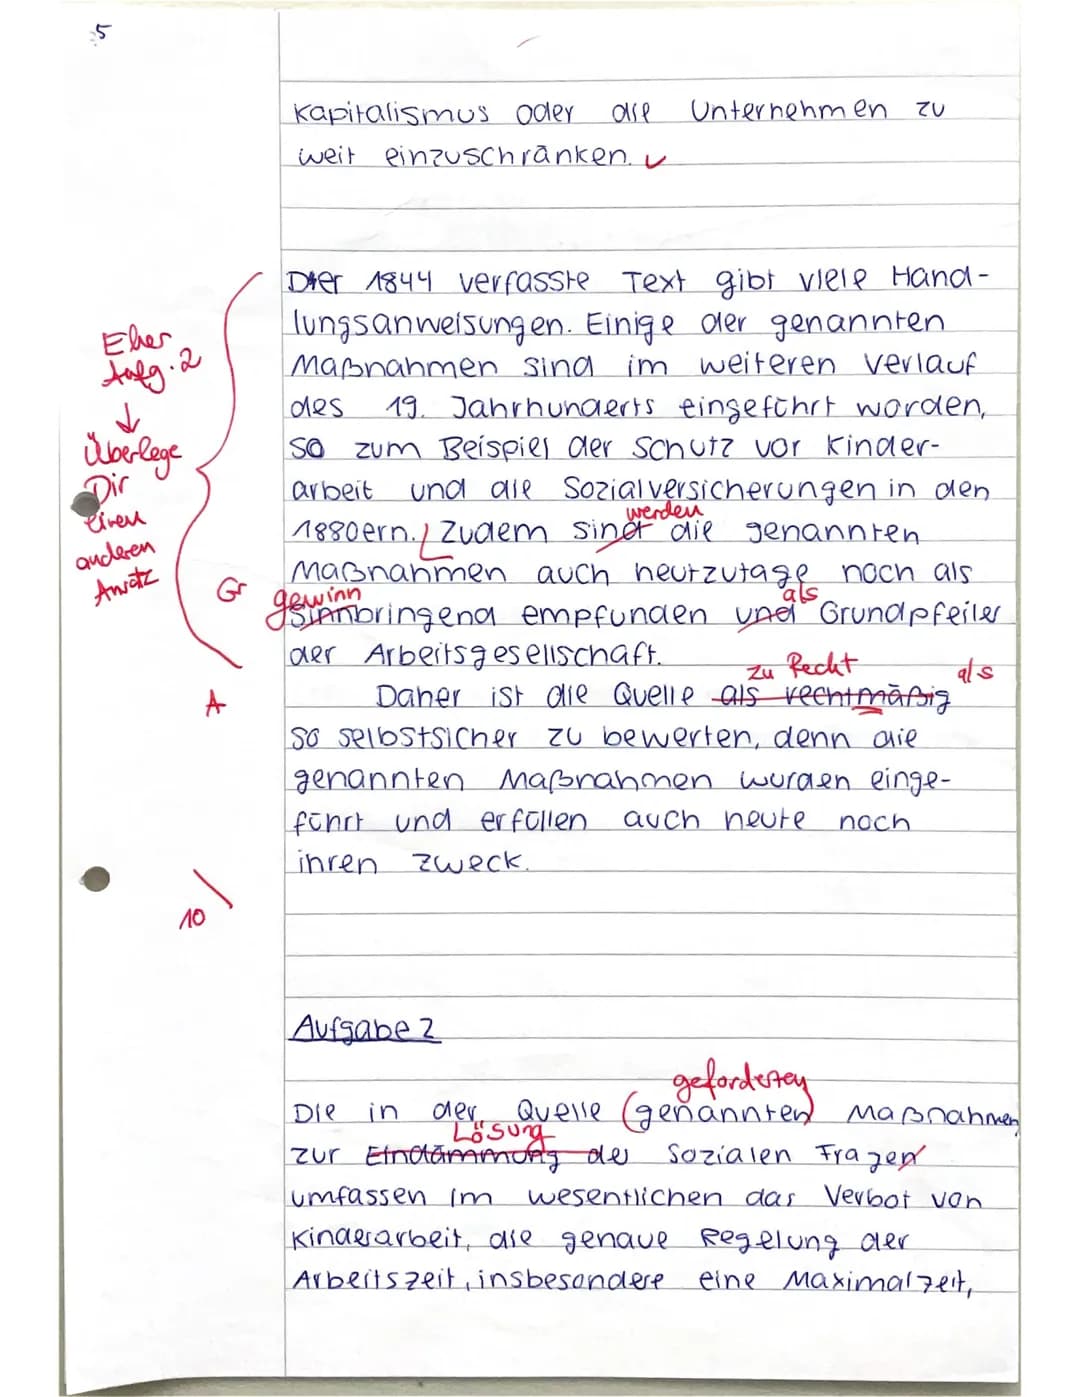 5
Kapitalismus oder die Unternehmen zu
weit einzuschränken.
Der 1844 verfasste Text gibt viele Hand-
lungsanweisungen. Einige der genannten
Maßnahmen sind im weiteren Verlauf
des 19. Jahrhunderts eingeführt worden,
so zum Beispiel der Schutz vor Kinder-
arbeit und die Sozialversicherungen in den
werden
1880ern. Zudem sind die genannten
Maßnahmen auch heutzutage noch als
gewinn als
sinnbringend empfunden und Grundpfeiler
der Arbeitsgesellschaft.
zu Recht als
Daher ist die Quelle als rechtmäßig
so selbstsicher zu bewerten, denn die
genannten Maßnahmen wurden einge-
führt und erfüllen auch heute noch
ihren Zweck.
Eher
Aufg. 2
↓
Überlege
Dir
einen
anderen
Ansatz
Gr
A
10
Aufgabe 2
geforderten
Die in der Quelle (genannten) Maßnahmen
Lösung
zur Eindämmung der Sozialen Fragen
umfassen im wesentlichen das Verbot von
Kinderarbeit, die genaue Regelung der
Arbeitszeit, insbesondere eine Maximalzeit,